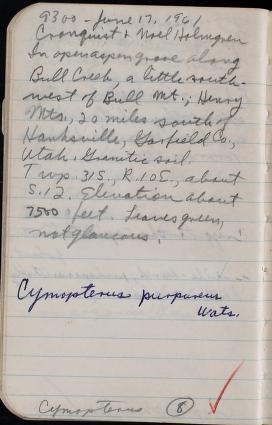 9300 - June 17, 1961
Cronquist & Noel Holmgren
In open aspen grove along
Bull Creek, a little south-
west of Bull Mt.; Henry
Mts., 20 miles south of
Hanksville, Garfield Co,
Utah. Granitic soil.
Twp. 31S., R.10E., about
S.12. Elevation about
7500 feet. Leaves green,
not glaucous.
Cymopterus purpureus
Wats.
Cymopterus 8